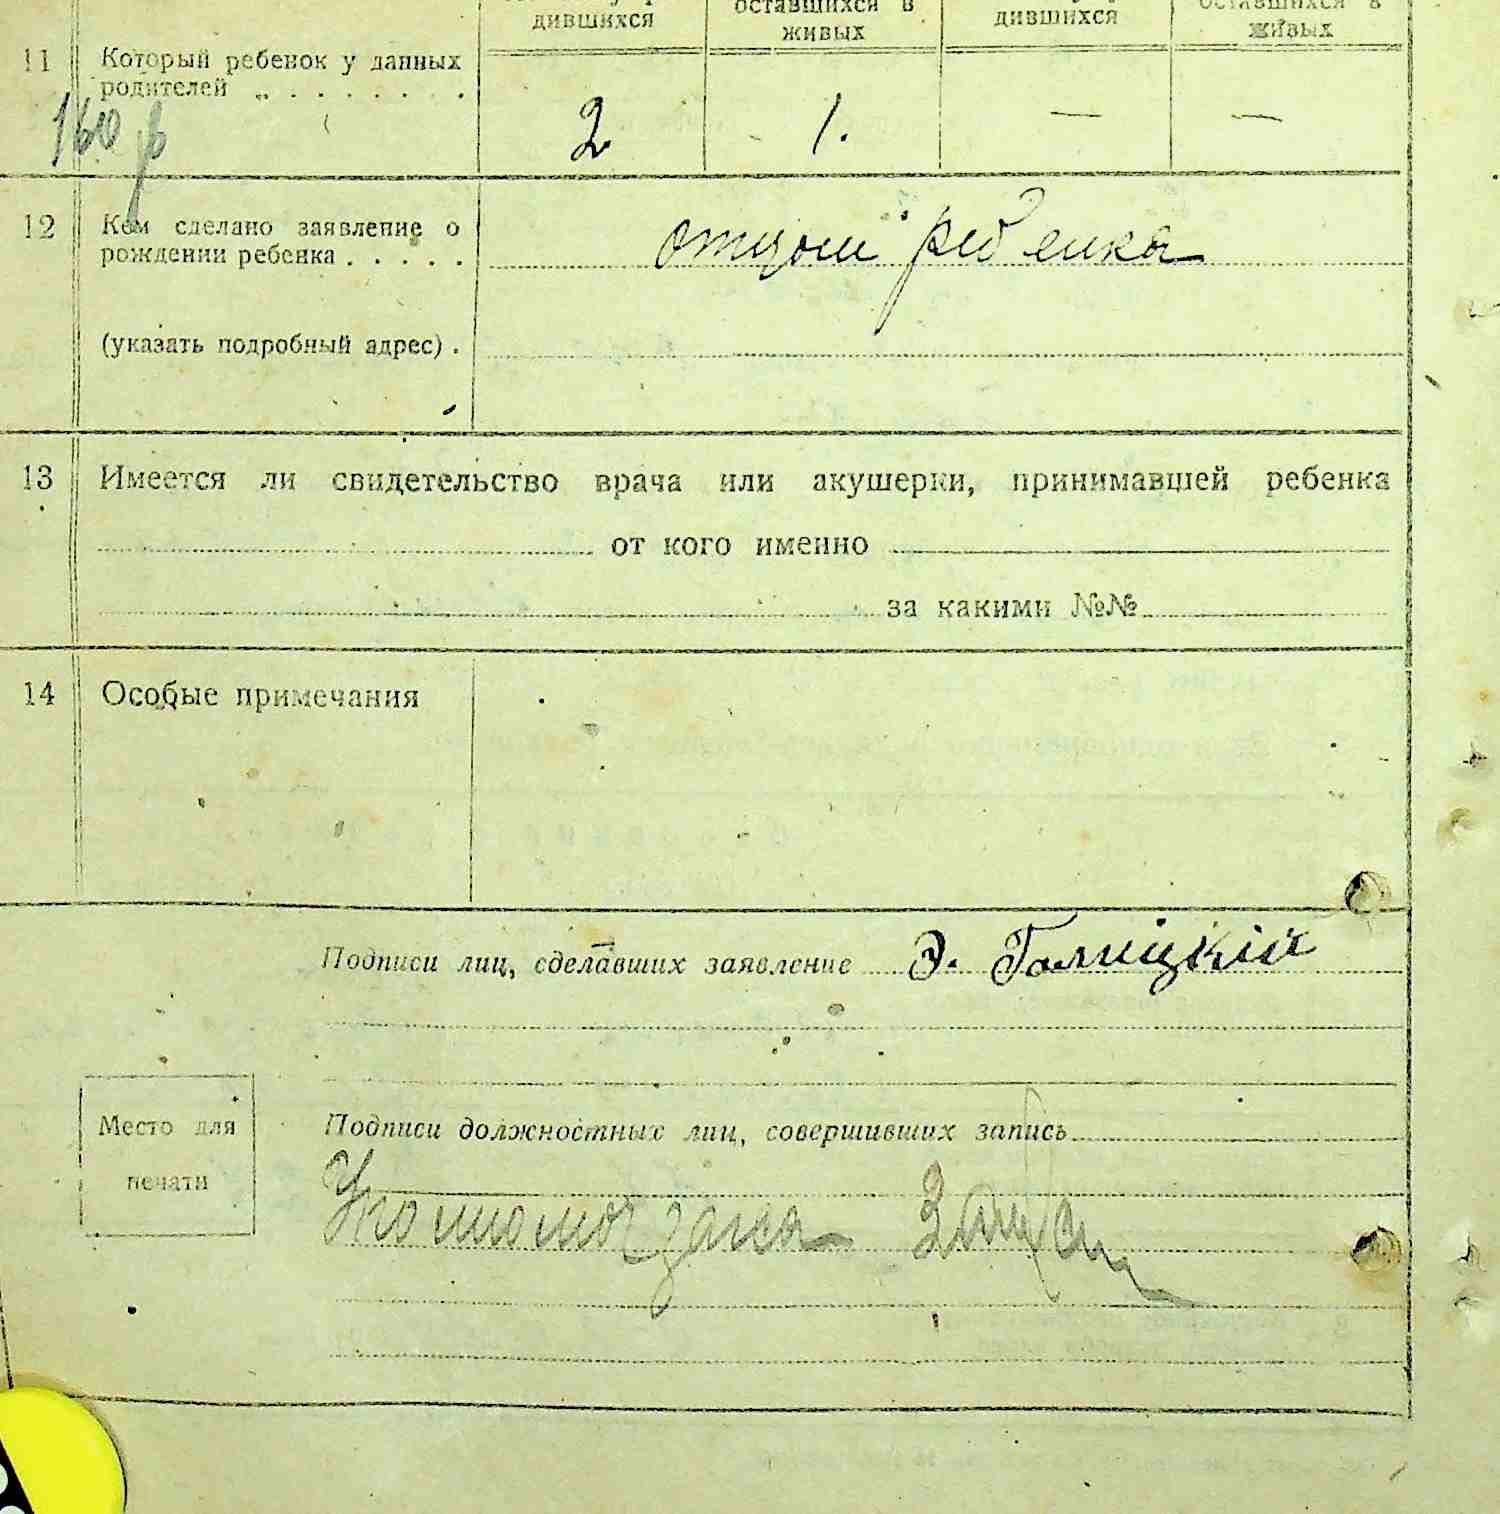 дившихся оставшихся в живых дившихся оставшихся в живых
11 Который ребенок у данных
родителей . . . . . . . .
160 р 2 1. — —
12 Кем сделано заявление о
рождении ребенка . . . . .
отцом ребенка
(указать подробный адрес) .
13 Имеется ли свидетельство врача или акушерки, принимавшей ребенка
от кого именно
за какими №№
14 Особые примечания
Подписи лиц, сделавших заявление Э. Галицкій
Место для
печати
Подписи должностных лиц, совершивших запись